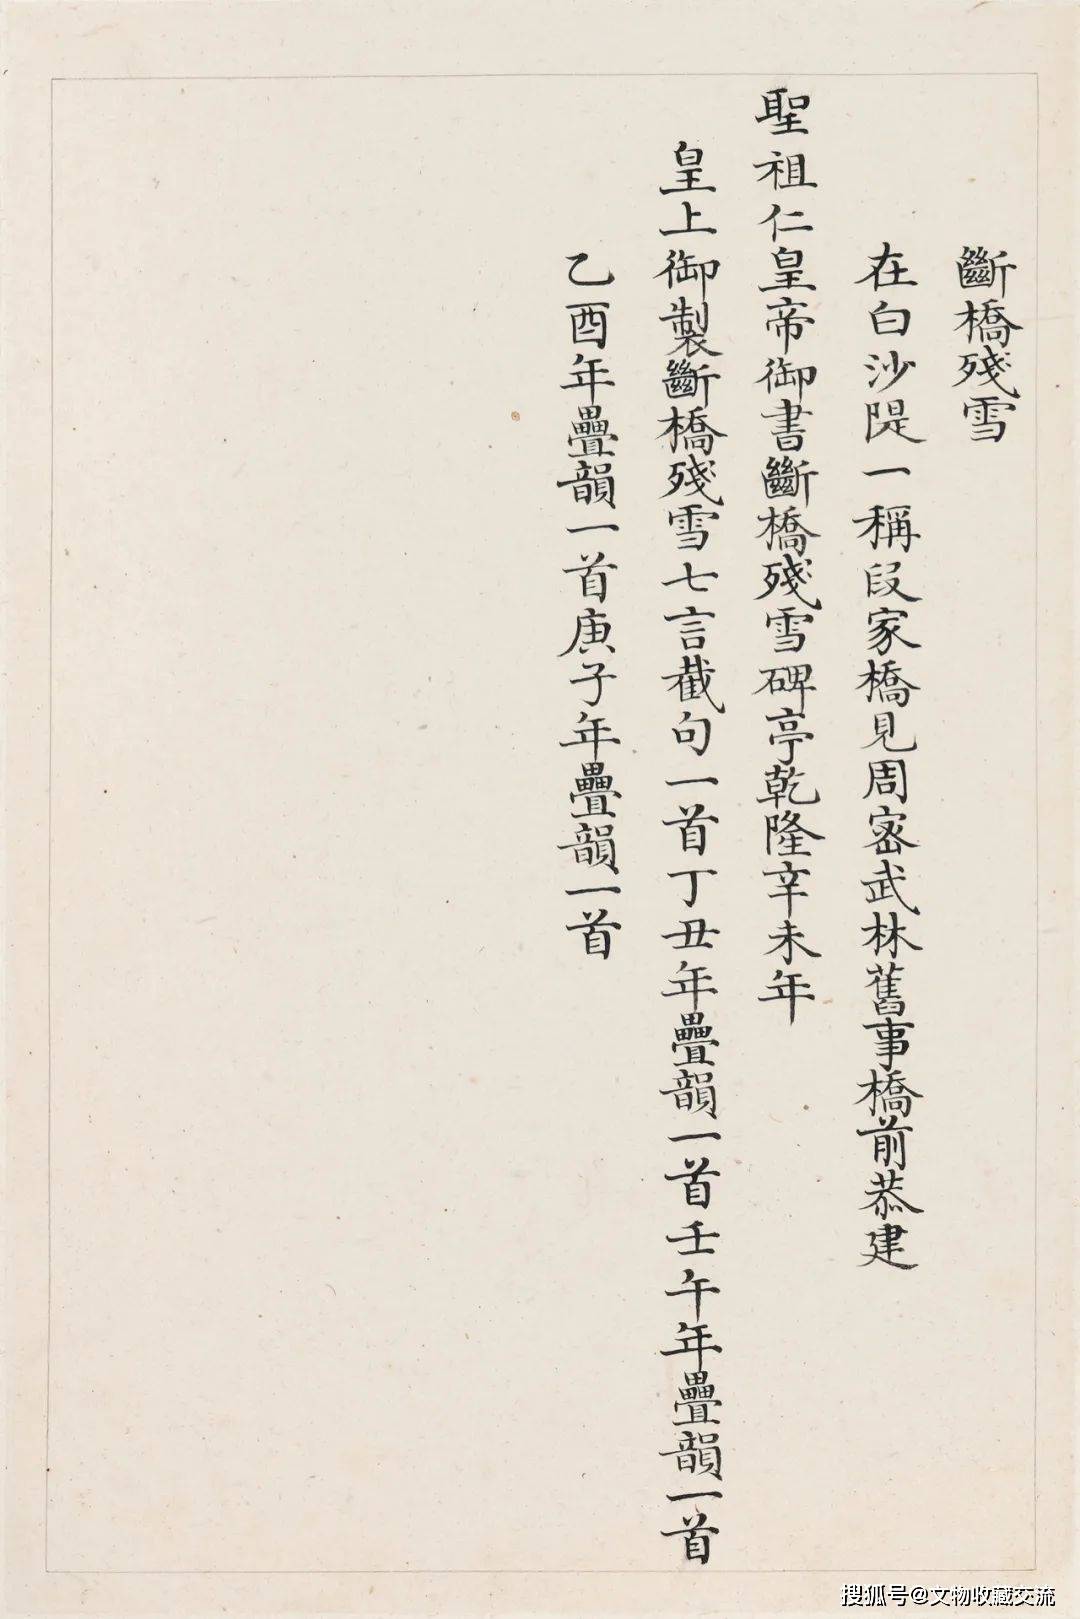 斷橋殘雪
在白沙隄一稱段家橋見周密武林舊事橋前恭建
聖祖仁皇帝御書斷橋殘雪碑亭乾隆辛未年
皇上御製斷橋殘雪七言截句一首丁丑年疊韻一首壬午年疊韻一首
乙酉年疊韻一首庚子年疊韻一首
搜狐号@文物收藏交流